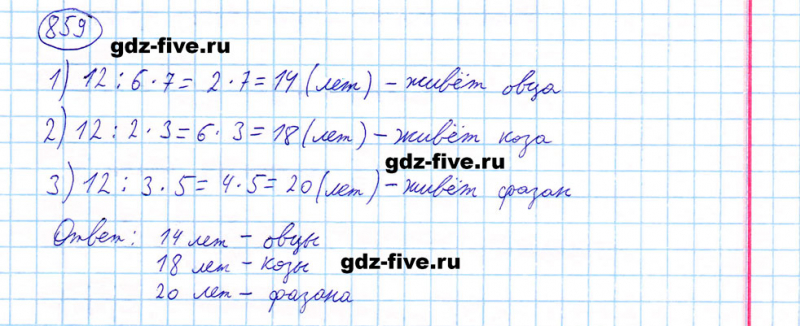 859
gdz-five.ru
1) 12 : 6 · 7 = 2 · 7 = 14 (лет) – живёт овца
2) 12 : 2 · 3 = 6 · 3 = 18 (лет) – живёт коза
gdz-five.ru
3) 12 : 3 · 5 = 4 · 5 = 20 (лет) – живёт фазан
Ответ: 14 лет – овцы
18 лет – козы
gdz-five.ru
20 лет – фазана